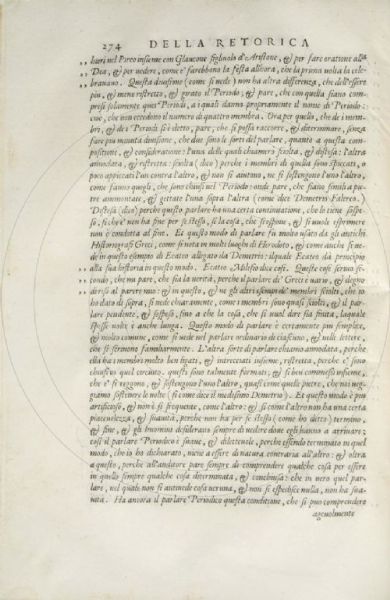 274 DELLA RETORICA
hieri nel Pireo insieme con Glaucone figliuolo d'Aristone, & per fare oratione alla
Dea, & per vedere, come e' farebbono la festa allhora, che la prima volta la cele-
branano. Questa diuisione (come si vede) non ha altra differenza, che dell'essere
piu, & meno ristretto, & girato il Periodo; & pare, che con quella siano com-
presi solamente quei Periodi, a i quali danno propriamente il nome di Periodo:
cioe, che non eccedono il numero di quattro membra. Ora per quello, che de i mem-
bri, & de i Periodi s'è detto, pare, che si possa raccorre, & determinare, senza
fare piu minuta diuisione, che due sono le sorti del parlare, quanto a questa com-
positione, & consideratione: l'una delle quali chiamerò sciolta, & distesa: l'altra
annodata, & ristretta: sciolta (dico) perche i membri di quella sono spiccati, o
poco appiccati l'un contra l'altro, & non si aiutono, ne si sostengono l'uno l'altro,
come fanno quegli, che sono chiusi nel Periodo: onde pare, che siano simili a pie-
tre ammontate, & gittate l'una sopra l'altra (come dice Demetrio Falereo.)
Distesa (dico) perche questo parlare ha una certa continuatione, che lo tiene sospe-
so, finche e' non ha fine per se stesso, se la cosa, che s'espone, & si vuole esprimere
non è condotta al fine. Et questo modo di parlare fu molto usato da gli antichi
Historiografi Greci, come si nota in molti luoghi di Herodoto, & come anche si ve-
de in questo esempio di Ecateo allegato da Demetrio: ilquale Ecateo dà principio
alla sua historia in questo modo. Ecateo Milesio dice così. Queste cosi scriuo se-
condo, che mi pare, che sia la verità, perche il parlare de' Greci è vario, & degno
di riso, al parer mio: & in questo, & ne gli altri esempi de' membri sciolti, che io
ho dato di sopra, si vede chiaramente, come i membri sono quasi sciolti, & il par-
lare pendente, & sospeso, sino a che la cosa, che si vuol dire sia finita, laquale
spesse volte è anche lunga. Questo modo di parlare è certamente piu semplice,
& molto comune, come si vede nel parlare ordinario di ciascuno, & nelle lettere,
che si scriuono familiarmente. L'altra sorte di parlare chiamo annodata, perche
ella ha i membri molto ben legati, & intrecciati insieme, ristretta, perche e' sono
chiusi in quel circuito. questi sono talmente formati, & si ben commessi insieme,
che e' si reggono, & sostengono l'uno l'altro, quasi come quelle pietre, che noi veg-
giamo sostenere le volte (si come dice il medesimo Demetrio.) Et questo modo è piu
artificioso, & non è si frequente, come l'altro: & si come l'altro non ha una certa
piaceuolezza, & suauità, perche non ha per se stesso (come ho detto) termino,
& fine, & gli huomini desiderano sempre di vedere doue egli hanno a arriuare:
così il parlare Periodico è soaue, & diletteuole, perche essendo terminato in quel
modo, che io ho dichiarato, viene a essere di natura contraria all'altro: & oltra
a questo, perche all'auditore pare sempre di comprendere qualche cosa per essere
in quello sempre qualche cosa determinata, & conchiusa: che in vero quel par-
lare, nel quale non si antiuede cosa veruna, & non si espedisce nulla, non ha sua-
uità. Ha ancora il parlare Periodico questa conditione, che si può comprendere
ageuolmente